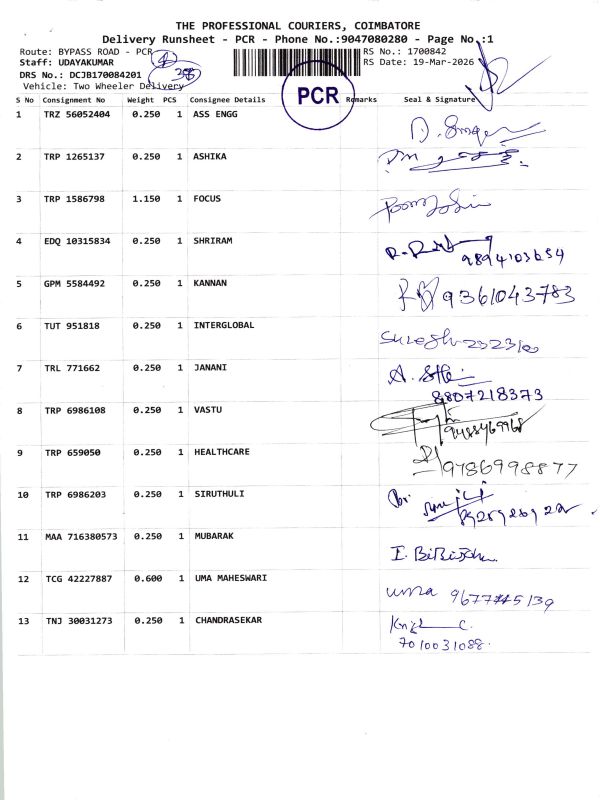 THE PROFESSIONAL COURIERS, COIMBATORE
Delivery Runsheet - PCR - Phone No.:9047080280 - Page No.:1
Route: BYPASS ROAD - PCR
RS No.: 1700842
Staff: UDAYAKUMAR
RS Date: 19-Mar-2026
DRS No.: DCJB170084201
Vehicle: Two Wheeler Delivery
PCR
S No Consignment No Weight PCS Consignee Details Remarks Seal & Signature
1 TRZ 56052404 0.250 1 ASS ENGG
2 TRP 1265137 0.250 1 ASHIKA
3 TRP 1586798 1.150 1 FOCUS
4 EDQ 10315834 0.250 1 SHRIRAM
9894103654
5 GPM 5584492 0.250 1 KANNAN 9361043783
6 TUT 951818 0.250 1 INTERGLOBAL
7 TRL 771662 0.250 1 JANANI
8807218373
8 TRP 6986108 0.250 1 VASTU
9 TRP 659050 0.250 1 HEALTHCARE
9786998877
10 TRP 6986203 0.250 1 SIRUTHULI
11 MAA 716380573 0.250 1 MUBARAK
12 TCG 42227887 0.600 1 UMA MAHESWARI
uma
13 TNJ 30031273 0.250 1 CHANDRASEKAR
7010031088.